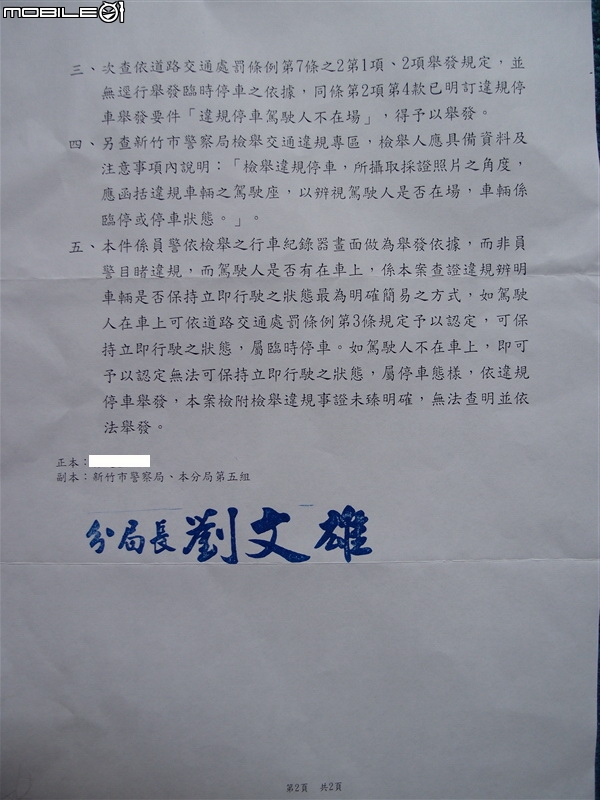 MOBILE01
三、次查依道路交通處罰條例第7條之2第1項、2項舉發規定，並
無逕行舉發臨時停車之依據，同條第2項第4款已明訂違規停
車舉發要件「違規停車駕駛人不在場」，得予以舉發。
四、另查新竹市警察局檢舉交通違規專區，檢舉人應具備資料及
注意事項內說明：「檢舉違規停車，所攝取採證照片之角度，
應函括違規車輛之駕駛座，以辨視駕駛人是否在場，車輛係
臨停或停車狀態。」。
五、本件係員警依檢舉之行車紀錄器畫面做為舉發依據，而非員
警目睹違規，而駕駛人是否有在車上，係本案查證違規辨明
車輛是否保持立即行駛之狀態最為明確簡易之方式，如駕駛
人在車上可依道路交通處罰條例第3條規定予以認定，可保
持立即行駛之狀態，屬臨時停車。如駕駛人不在車上，即可
予以認定無法可保持立即行駛之狀態，屬停車態樣，依違規
停車舉發，本案檢附檢舉違規事證未臻明確，無法查明並依
法舉發。
正本：
副本：新竹市警察局、本分局第五組
分局長劉文雄
第2頁 共2頁